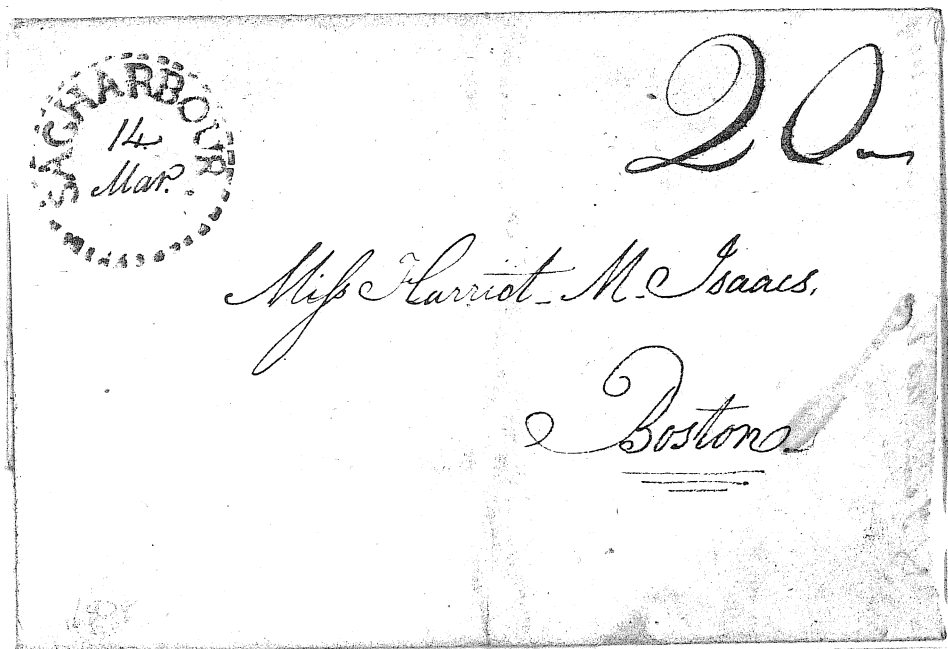 SAGHARBOUR
14
Mar.
20
Miſs Harriot M. Isaacs.
Boston